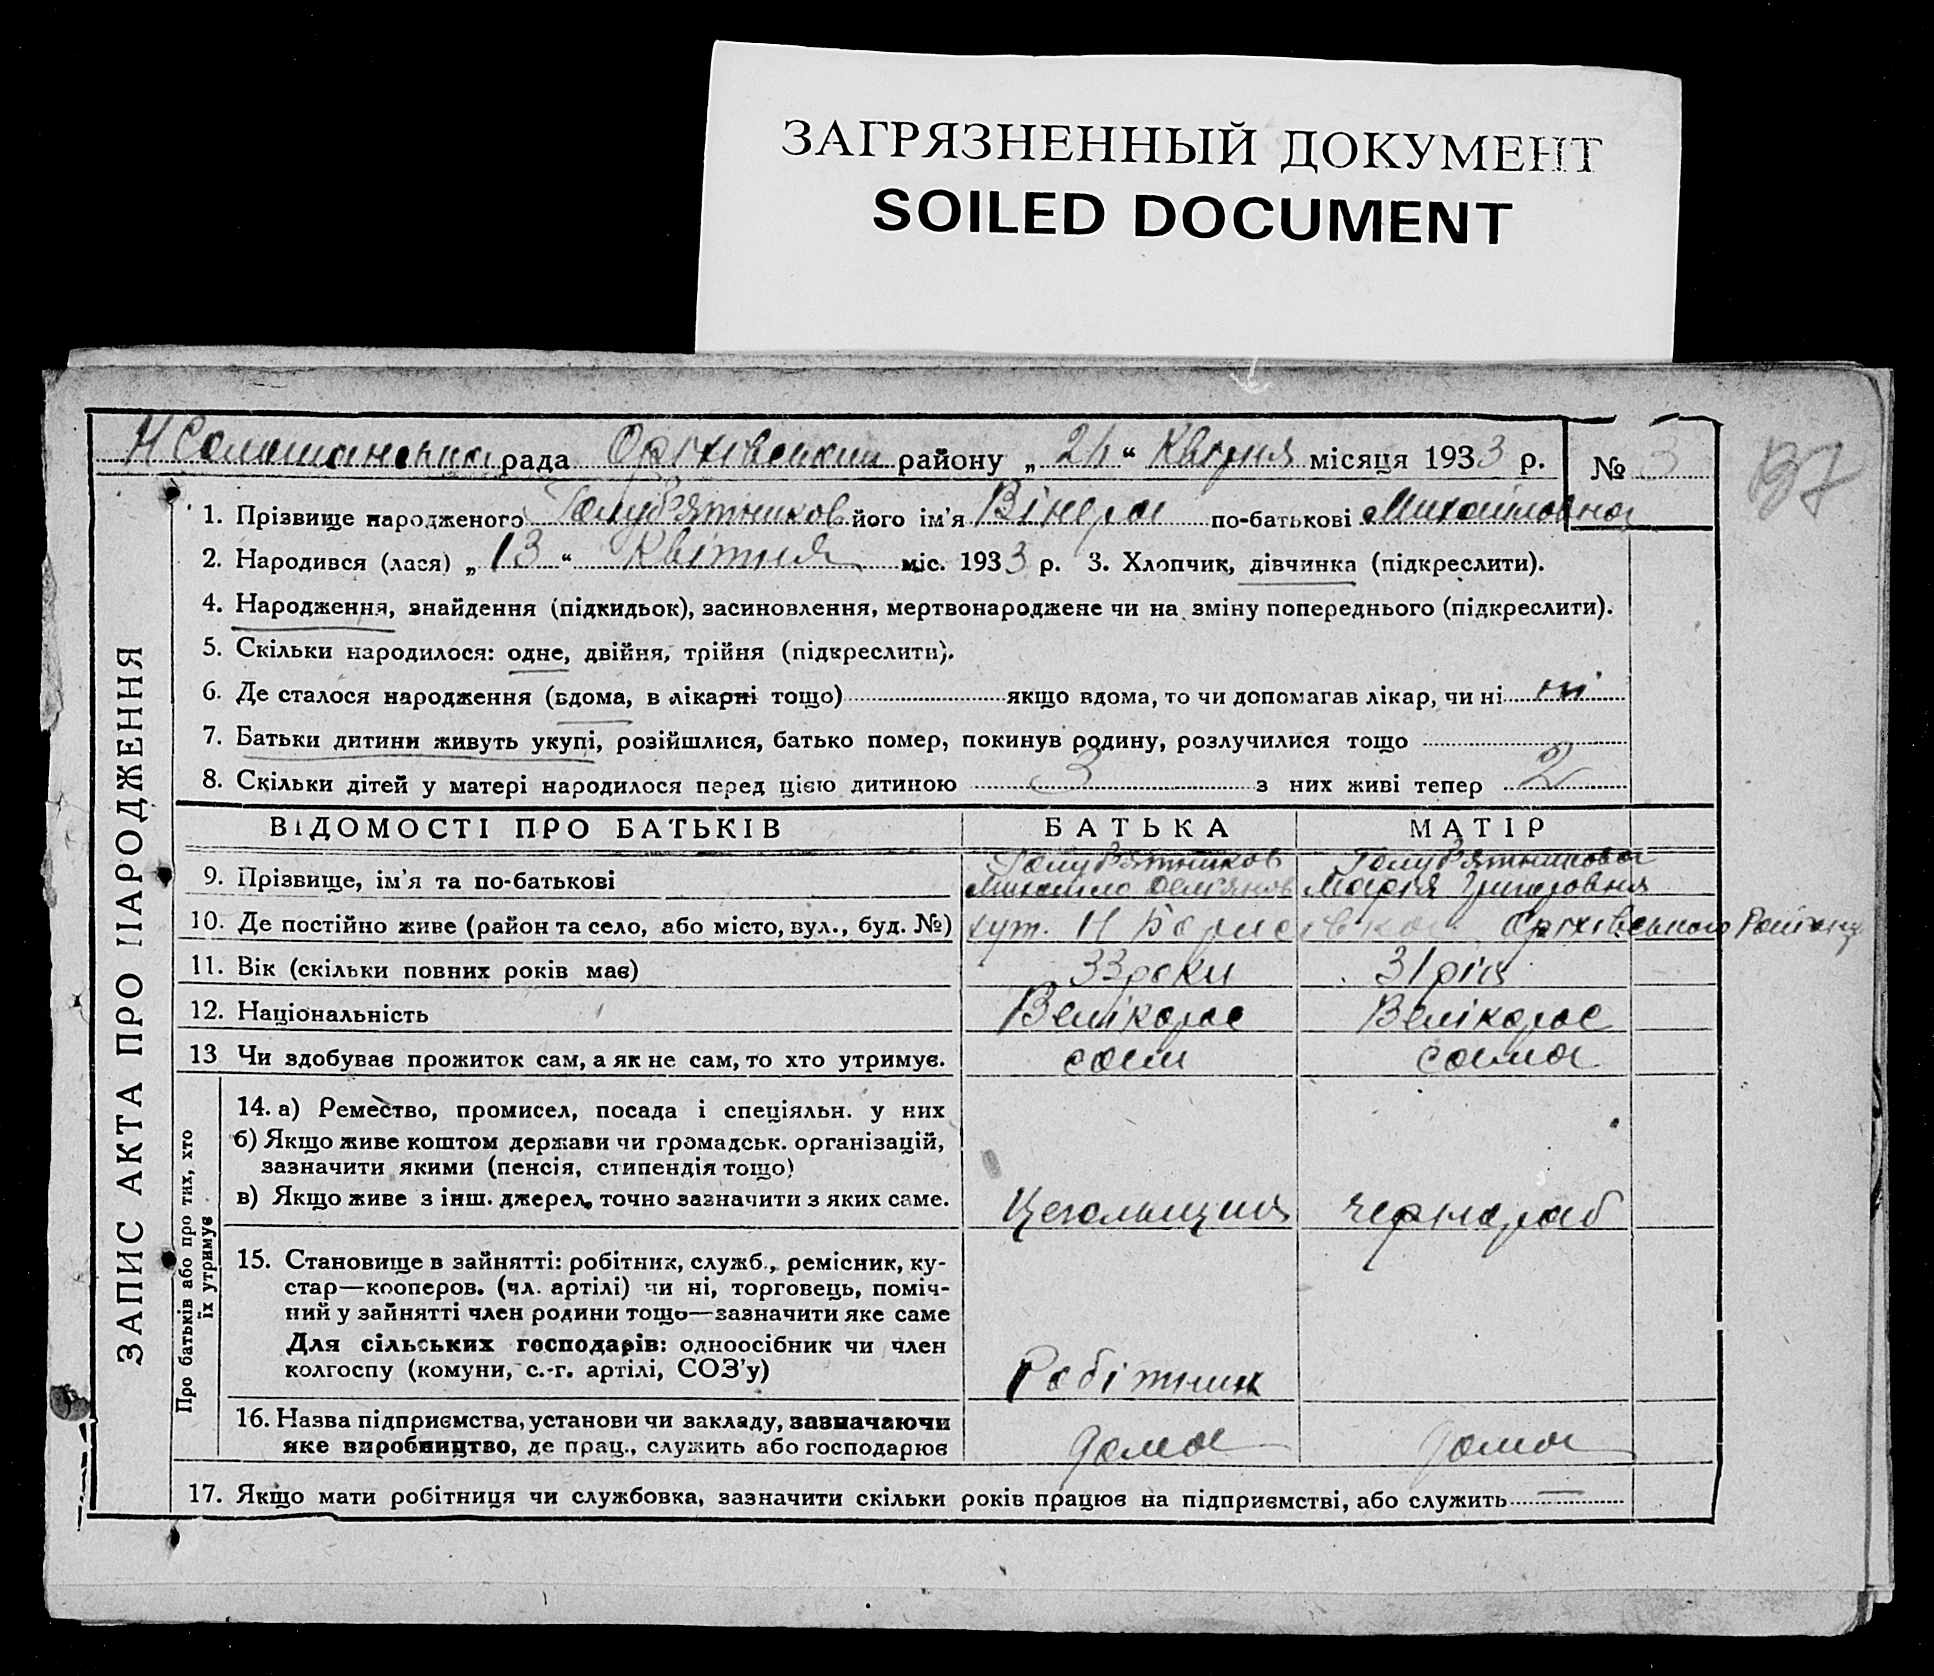 ЗАГРЯЗНЕННЫЙ ДОКУМЕНТ
SOILED DOCUMENT
рада Оріхівський району „24“ Квітня місяця 1933 р. № 3
137
1. Прізвище народженого Голуб'ятников його ім'я Вінера по-батькові Михайловна
2. Народився (лася) „13“ Квітня міс. 1933 р. 3. Хлопчик, дівчинка (підкреслити).
4. Народження, знайдення (підкидьок), засиновлення, мертвонароджене чи на зміну попереднього (підкреслити).
5. Скільки народилося: одне, двійня, трійня (підкреслити).
6. Де сталося народження (вдома, в лікарні тощо) якщо вдома, то чи допомагав лікар, чи ні ні
7. Батьки дитини живуть укупі, розійшлися, батько помер, покинув родину, розлучилися тощо
8. Скільки дітей у матері народилося перед цією дитиною 3 з них живі тепер 2
ЗАПИС АКТА ПРО НАРОДЖЕННЯ
ВІДОМОСТІ ПРО БАТЬКІВ БАТЬКА МАТІР
9. Прізвище, ім'я та по-батькові Голуб'ятников Голуб'ятникова
Михайло Марія Григоровня
10. Де постійно живе (район та село, або місто, вул., буд. №) хут. Н Борисівка Оріхівського Району
11. Вік (скільки повних років має) 33 роки 31 рік
12. Національність Велікорос Велікорос
13 Чи здобуває прожиток сам, а як не сам, то хто утримує. сам сама
Про батьків або про тих, хто
їх утримує
14. а) Ремество, промисел, посада і спеціяльн. у них
б) Якщо живе коштом держави чи громадськ. організацій,
зазначити якими (пенсія, стипендія тощо)
в) Якщо живе з інш. джерел, точно зазначити з яких саме. Чернораб
15. Становище в зайнятті: робітник, служб., ремісник, ку-
стар—кооперов. (чл. артілі) чи ні, торговець, поміч-
ний у зайнятті член родини тощо—зазначити яке саме
Для сільських господарів: одноосібник чи член
колгоспу (комуни, с.-г. артілі, СОЗ'у) Робітник
16. Назва підприємства, установи чи закладу, зазначаючи
яке виробництво, де прац., служить або господарює дома дома
17. Якщо мати робітниця чи службовка, зазначити скільки років працює на підприємстві, або служить —